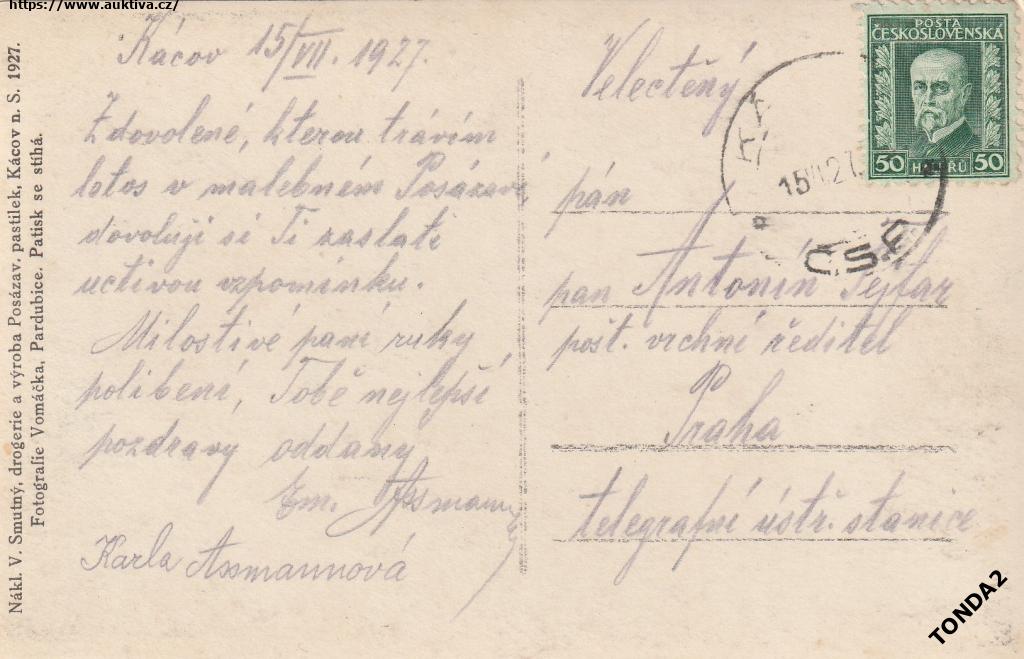 https://www.auktiva.cz/
Kácov 15/VII. 1927.
Z dovolené, kterou trávím
letos v malebném Posázaví
dovoluji si Ti zaslati
uctivou vzpomínku.
Milostivé paní ruky
políbení, Tobě nejlepší
pozdravy oddaný
Em. Assmann
Karla Assmannová
Velectěný
pán
pan Antonín Tejkar
pošt. vrchní ředitel
Praha
telegrafní ústř. stanice
POŠTA
ČESKOSLOVENSKÁ
50 HALÉŘŮ 50
15 VII 27
ČSR
Nákl. V. Smutný, drogerie a výroba Posázav. pastilek, Kácov n. S. 1927.
Fotografie Vomáčka, Pardubice. Patisk se stíhá.
TONDA2